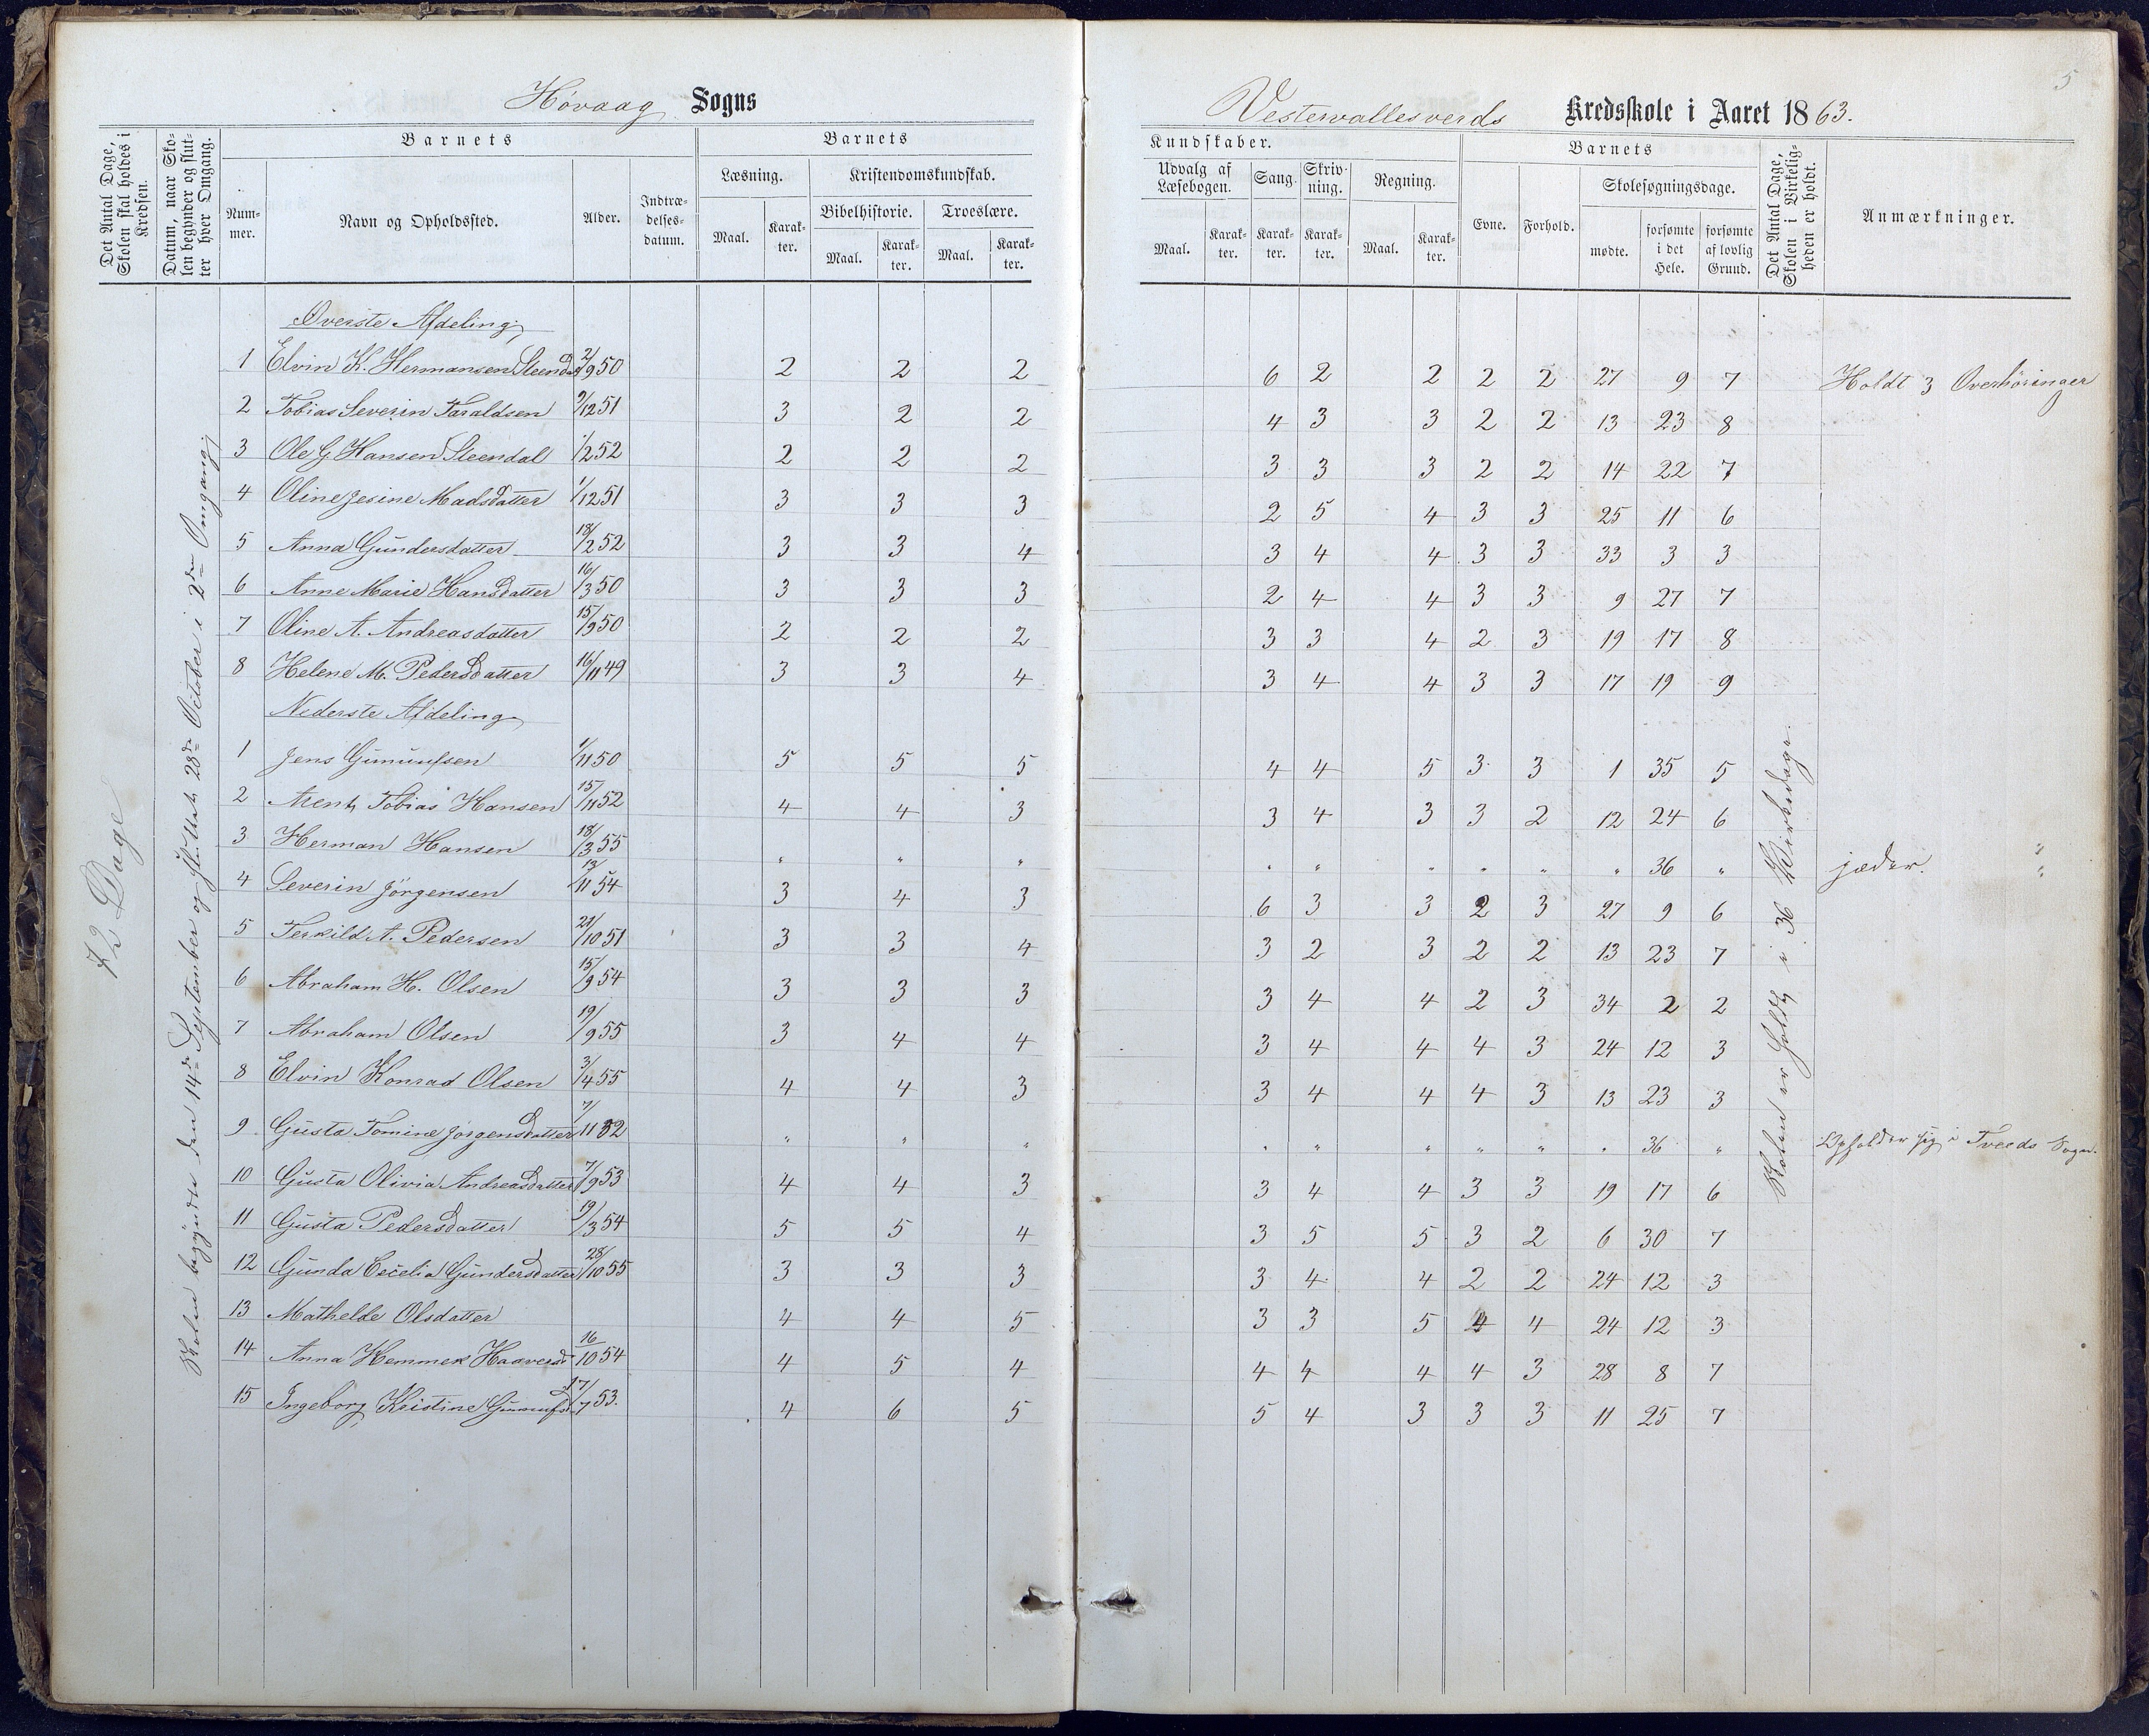 Høvaag Sogns
Vestervallesverds Kredsskole i Aaret 1863.
5
Det Antal Dage, Skolen skal holdes i Kredsen.
Datum, naar Skolen begynder og slutter hver Omgang.
Barnets
Nummer.
Navn og Opholdssted.
Alder.
Indtrædelsesdatum.
Barnets
Læsning.
Maal.
Karakter.
Kristendomskundskab.
Bibelhistorie.
Maal.
Karakter.
Troeslære.
Maal.
Karakter.
Kundskaber.
Udvalg af Læsebogen.
Maal.
Karakter.
Sang.
Karakter.
Skrivning.
Karakter.
Regning.
Maal.
Karakter.
Barnets
Evne.
Forhold.
Skolesøgningsdage.
mødte.
forsømte i det Hele.
forsømte af lovlig Grund.
Det Antal Dage, Skolen i Virkeligheden er holdt.
Anmærkninger.
72 Dage
Skolen begyndte den 14de September og sluttet 28de October i 2den Omgang
Øverste Afdeling
1 Elvin K. Hermansen Steendal 2/9 50 2 2 2 6 2 2 2 2 27 9 7 Holdt 3 Overhøringer
2 Tobias Severin Taraldsen 9/12 51 3 2 2 4 3 3 2 2 13 23 8
3 Ole G. Hansen Steendal 1/2 52 2 2 2 3 3 3 2 2 14 22 7
4 Oline Jesine Madsdatter 1/12 51 3 3 3 2 5 4 3 3 25 11 6
5 Anna Gundersdatter 18/2 52 3 3 4 3 4 4 3 3 33 3 3
6 Anne Marie Hansdatter 16/3 50 3 3 3 2 4 4 3 3 9 27 7
7 Oline A. Andreasdatter 15/9 50 2 2 2 3 3 4 2 3 19 17 8
8 Helene M. Pedersdatter 16/11 49 3 3 4 3 4 4 3 3 17 19 9
Nederste Afdeling
1 Jens Gunuufsen 1/11 50 5 5 5 4 4 5 3 3 1 35 5
2 Arent Tobias Hansen 15/11 52 4 4 3 3 4 3 3 2 12 24 6
3 Herman Hansen 18/3 55 " " " " " " " " " 36 " jæder. "
4 Severin Jørgensen 13/11 54 3 4 3 6 3 3 2 3 27 9 6
5 Terkild A. Pedersen 21/10 51 3 3 4 3 2 3 2 2 13 23 7
6 Abraham H. Olsen 15/9 54 3 3 3 3 4 4 2 3 34 2 2
7 Abraham Olsen 19/9 55 3 4 4 3 4 4 4 3 24 12 3
8 Elvin Konrad Olsen 3/4 55 4 4 3 3 4 4 4 3 13 23 3
9 Gusta Tomine Jørgensdatter 7/11 52 " " " " " " " " " 36 " Opholder sig i Tveeds Sogn.
10 Gusta Olivia Andreasdatter 7/9 53 4 4 3 3 4 4 3 3 19 17 6
11 Gusta Pedersdatter 19/3 54 5 5 4 3 5 5 3 2 6 30 7
12 Gunda Cecelia Gundersdatter 28/10 55 3 3 3 3 4 4 2 2 24 12 3
13 Mathelde Olsdatter 4 4 5 3 3 5 4 4 24 12 3
14 Anna Hemmek Haaversd 16/10 54 4 5 4 4 4 4 4 3 28 8 7
15 Ingeborg Kristine Gunuufsd 17/7 53. 4 6 5 5 4 3 3 3 11 25 7
Skolen er holdt i 36 Virkedage.